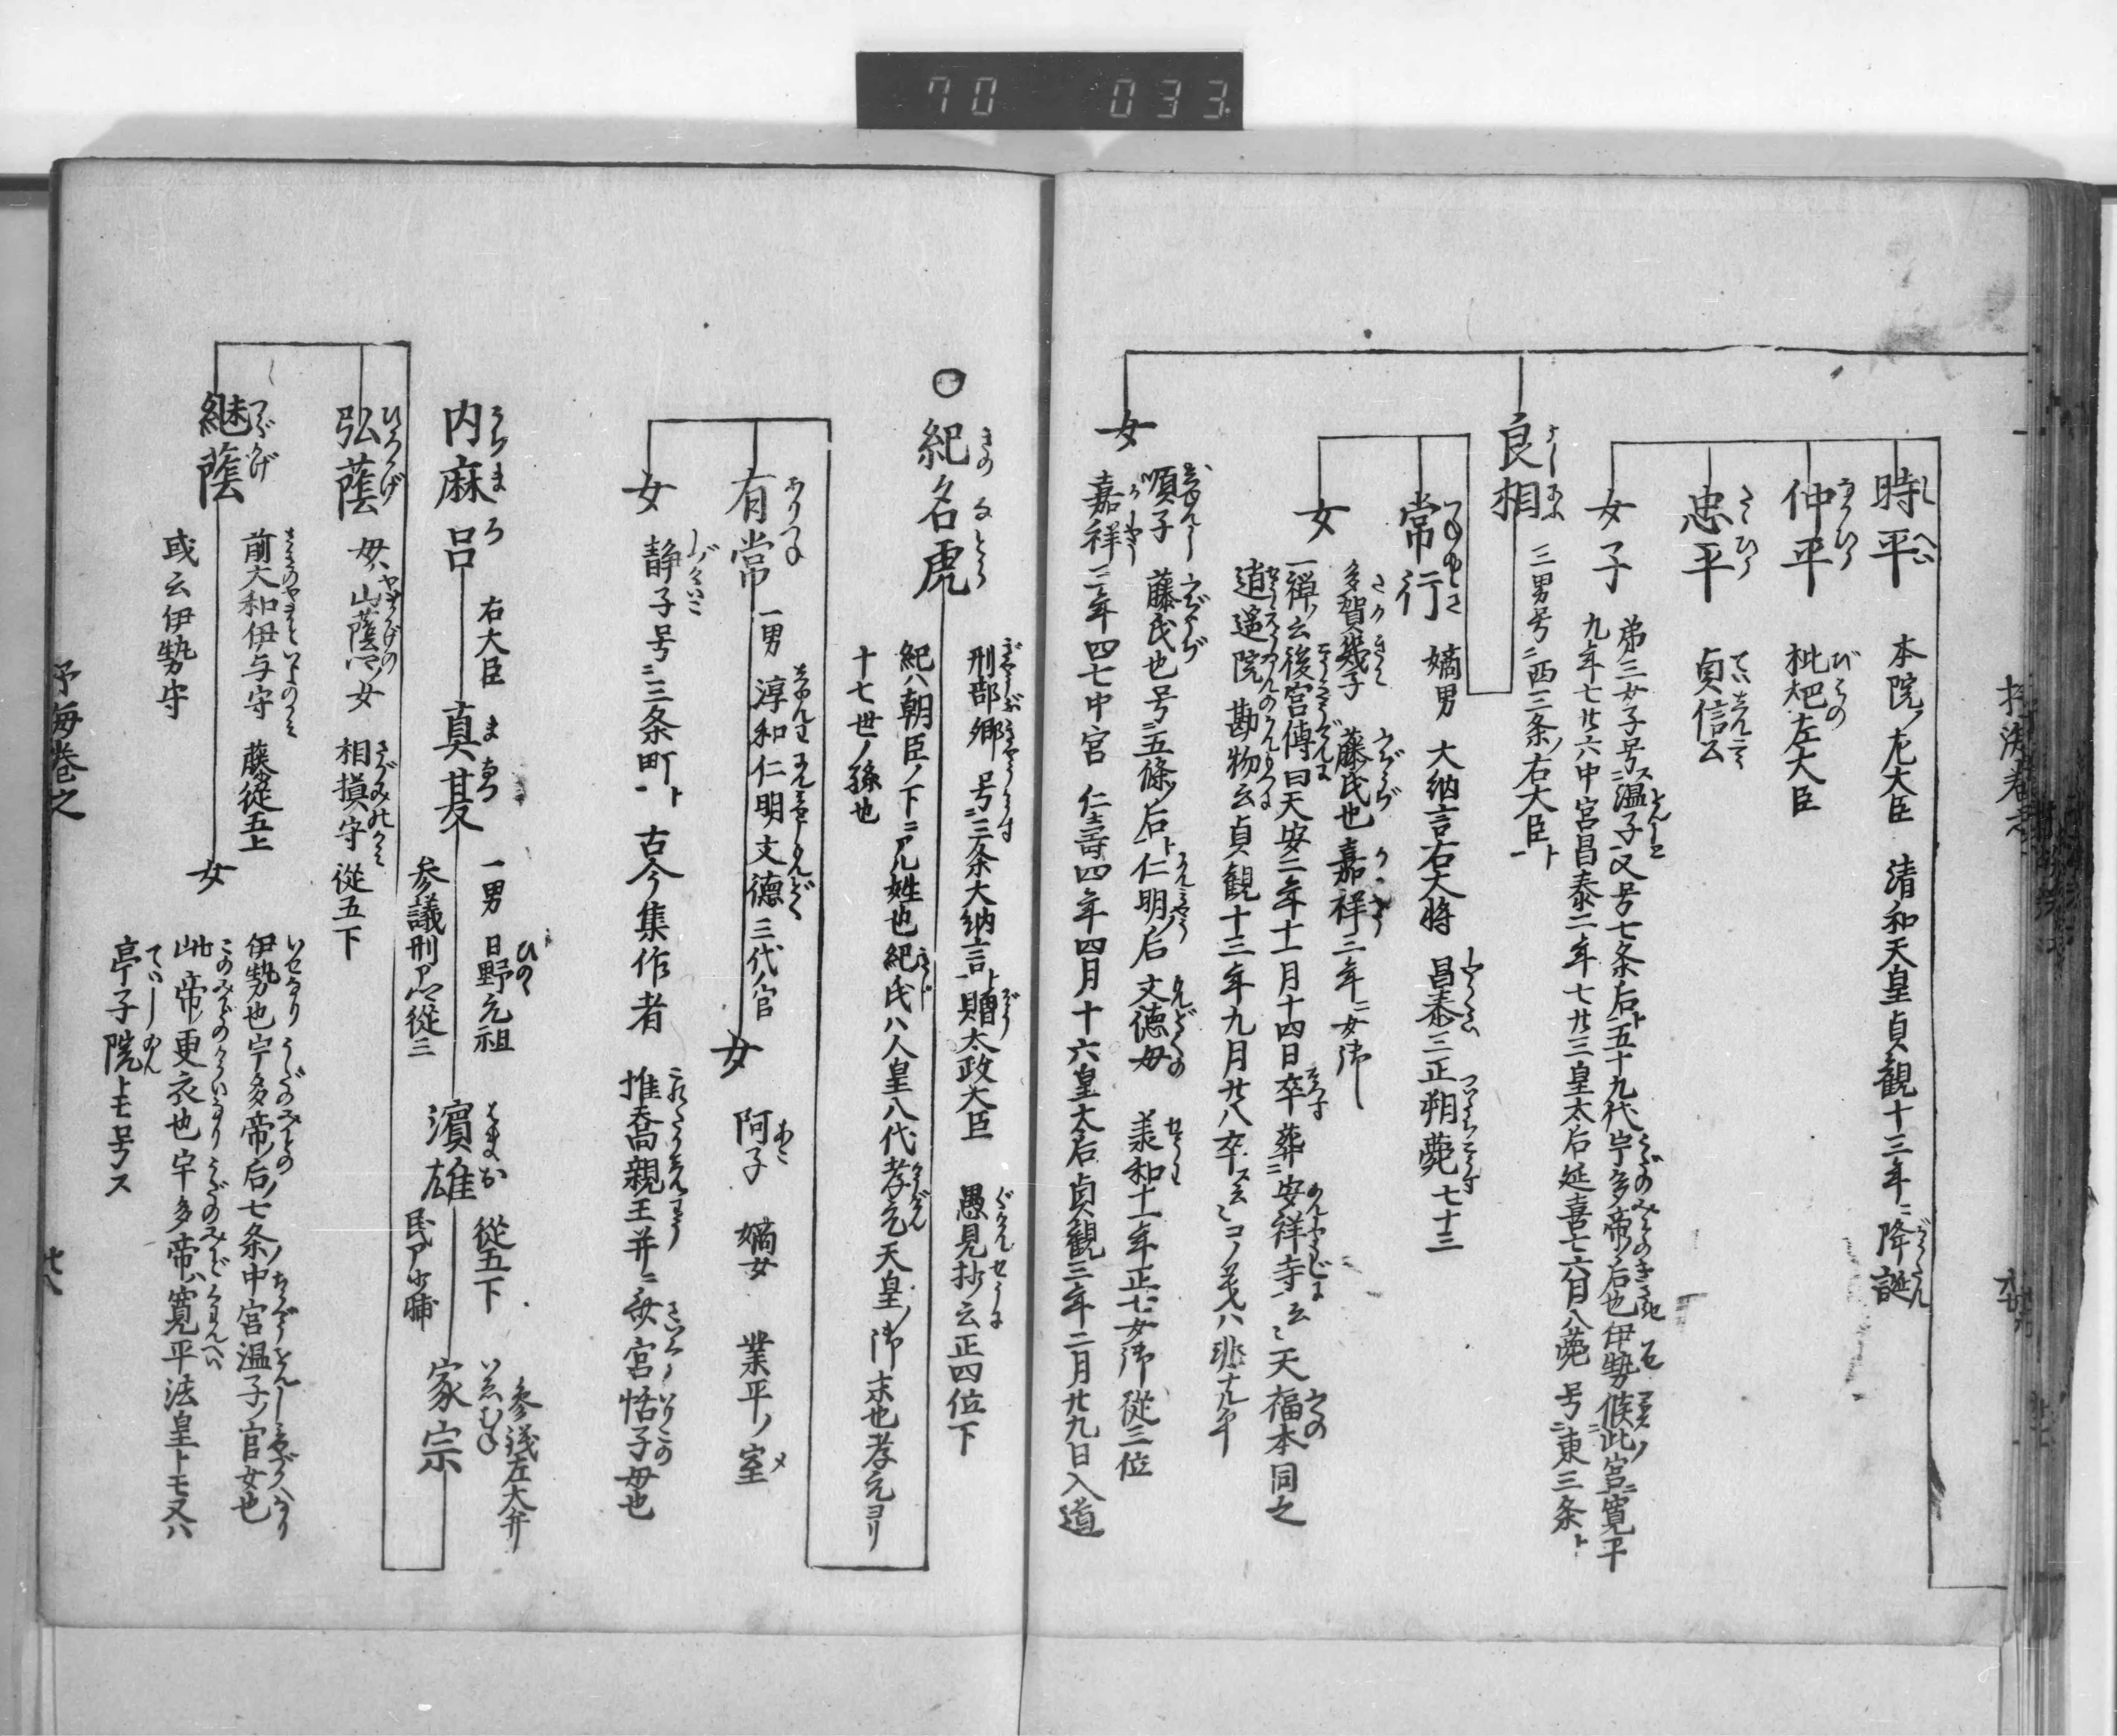 70 033
時平 本院ノ左大臣 清和天皇貞観十三年ニ降誕
仲平 枇杷左大臣
忠平 貞信公
女子 弟三女子号ス温子ト又号七条后ト五十九代宇多帝ノ后也伊勢候此宮ニ寛平
九年七廿六中宮昌泰二年七廿三皇太后延喜七六月八薨号ニ東三条ト
良相 三男号ニ西三条ノ右大臣ト
常行 嫡男 大納言右大将 昌泰三正朔薨七十三
女 多賀幾子 藤氏也 嘉祥三年ニ女御
一禅ノ云後宮傳曰天安二年十一月十四日卒葬ニ安祥寺ニ云々天福本同之
逍遥院勘物云貞観十三年九月廿八卒ス云々コノ義ハ非ナルヘ
女 順子 藤氏也号ニ五條ノ后ト仁明ノ后 文徳母 承和十一年正七女御従三位
嘉祥三年四七中宮 仁壽四年四月十六皇太后貞観三年二月廿九日入道
○紀名虎 刑部卿 号ニ三条大納言ト贈太政大臣 愚見抄云正四位下
紀ハ朝臣ノ下ニアル姓也紀氏ハ人皇八代孝元天皇ノ御末也孝元ヨリ
十七世ノ孫也
有常 一男 淳和仁明文徳三代ノ官
女 阿子 嫡女 業平ノ室
女 静子号ニ三条町ト 古今集作者 惟喬親王并ニ斎宮恬子母也
内麻呂 右大臣
真夏 一男 日野元祖
参議刑ア卿従三
濱雄 従五下
民ア少輔
家宗 参議左大弁
弘蔭 母ハ山蔭卿女 相摸守従五下
継蔭 前大和伊与守 藤従五上
或云伊勢守
女 伊勢也宇多帝ノ后ノ七条ノ中宮温子ノ官女也
此帝ノ更衣也宇多帝ハ寛平法皇トモ又ハ
亭子院トモ号ス
予海巻之 廿八